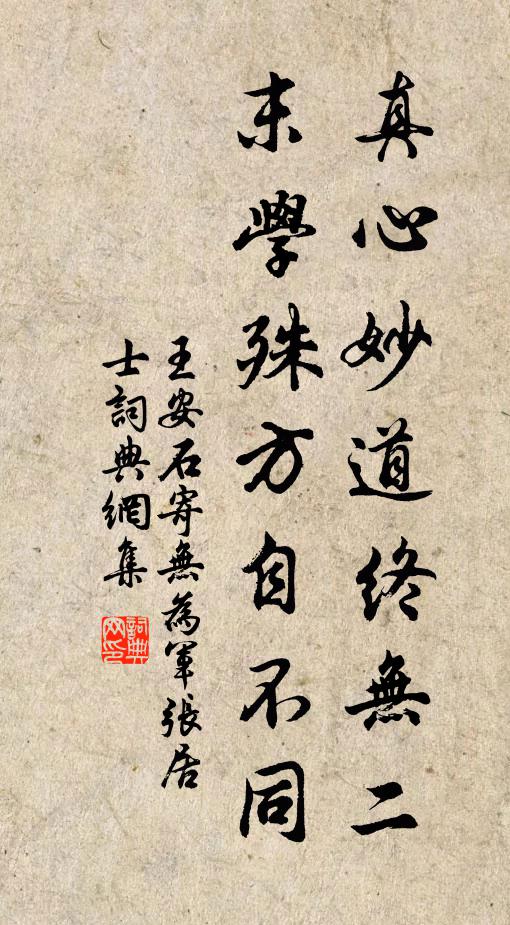 真心妙道終無二
末學殊方自不同
王安石寄無為軍張居
士詞典網集
詞典
网印